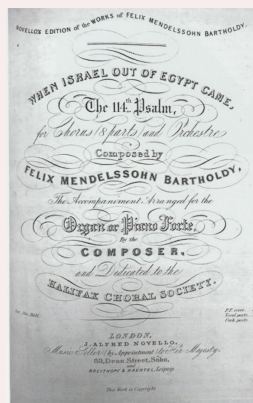 NOVELLO'S EDITION OF THE WORKS OF FELIX MENDELSSOHN BARTHOLDY.
WHEN ISRAEL OUT OF EGYPT CAME,
The 114th Psalm,
for Chorus (8 parts) and Orchestra
Composed by
FELIX MENDELSSOHN BARTHOLDY,
The Accompaniment Arranged for the
Organ or Piano Forte,
By the
COMPOSER,
and Dedicated to the
HALIFAX CHORAL SOCIETY.
LONDON,
J. ALFRED NOVELLO,
Music Seller by Appointment to Her Majesty.
69, Dean Street, Soho,
and
BREITKOPF & HAERTEL, Leipzig.